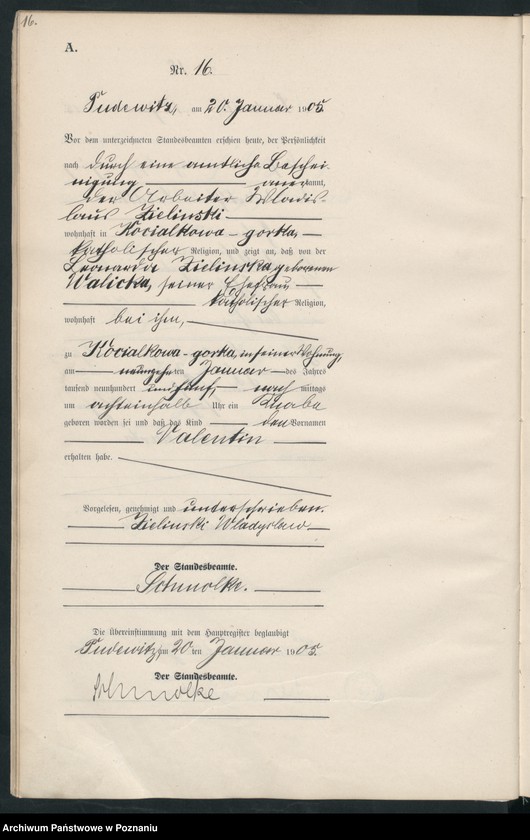 16.
A.
Nr. 16.
Pudewitz, am 20. Januar 1905.
Vor dem unterzeichneten Standesbeamten erschien heute, der Persönlichkeit
nach durch eine amtliche Beschei-
nigung anerkannt,
der Arbeiter Wladis-
laus Zielinski
wohnhaft in Kocialkowa-gorka,
katholischer Religion, und zeigt an, daß von der
Leonarda Zielinska geborenen
Walicka, seiner Ehefrau
katholischer Religion,
wohnhaft bei ihm,
zu Kocialkowa-gorka, in seiner Wohnung,
am neunzehnten Januar des Jahres
tausend neunhundert und fünf nach mittags
um achteinhalb Uhr ein Knabe
geboren worden sei und daß das Kind den Vornamen
Valentin
erhalten habe.
Vorgelesen, genehmigt und unterschrieben.
Zielinski Wladyslaw
Der Standesbeamte.
Schmolke.
Die Übereinstimmung mit dem Hauptregister beglaubigt
Pudewitz, am 20 ten Januar 1905.
Der Standesbeamte.
Schmolke
Archiwum Państwowe w Poznaniu